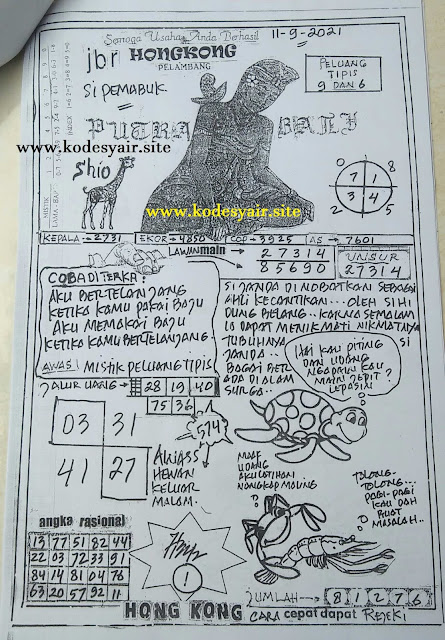 Semoga Usaha Anda Berhasil
11-9-2021
jbr HONGKONG
PELAMBANG
SI PEMABUK
PELUANG
TIPIS
9 DAN 6
PUTRA BALI
www.kodesyair.site
Shio
0 8
7 1
3 4
2 5
www.kodesyair.site
KEPALA 2731 EKOR 4850 COP 3925 AS 7601
LAWAN main 27314
85690
UNSUR
27314
COBA DI TERKA:
AKU BERTELANJANG
KETIKA KAMU PAKAI BAJU
AKU MEMAKAI BAJU
KETIKA KAMU BERTELANJANG.
AWAS! MISTIK PELUANG TIPIS
SI JANDA DI NOBATKAN SEBAGAI
AHLI KECANTIKAN... OLEH SI HI
DUNG BELANG.. KARNA SEMALAM
IA DAPAT MENIKMATI NIKMATNYA
TUBUHNYA SI
JANDA..
BAGAI BER
ADA DI ALAM
SURGA..
HAI KAU PITING
DAN UDANG
NGAPAIN KAU
MAIN JEPIT
LEPASIN
JALUR UANG 28 19 40
75 36
574
03 31
41 27
ALIASS
HEWAN
KELUAR
MALAM.
MAAF
UDANG
AKU LATIHAN
NONGKAP MALING
TOLONG-
TOLONG...
PAGI-PAGI
KAU DAH
BUAT
MASALAH..
angka rasional
13 77 51 82 44
22 03 72 33 91
84 14 81 04 76
63 20 57 92 11
!
JUMLAH 8 1 2 7 6
HONG KONG CARA cepat dapat REJEKI